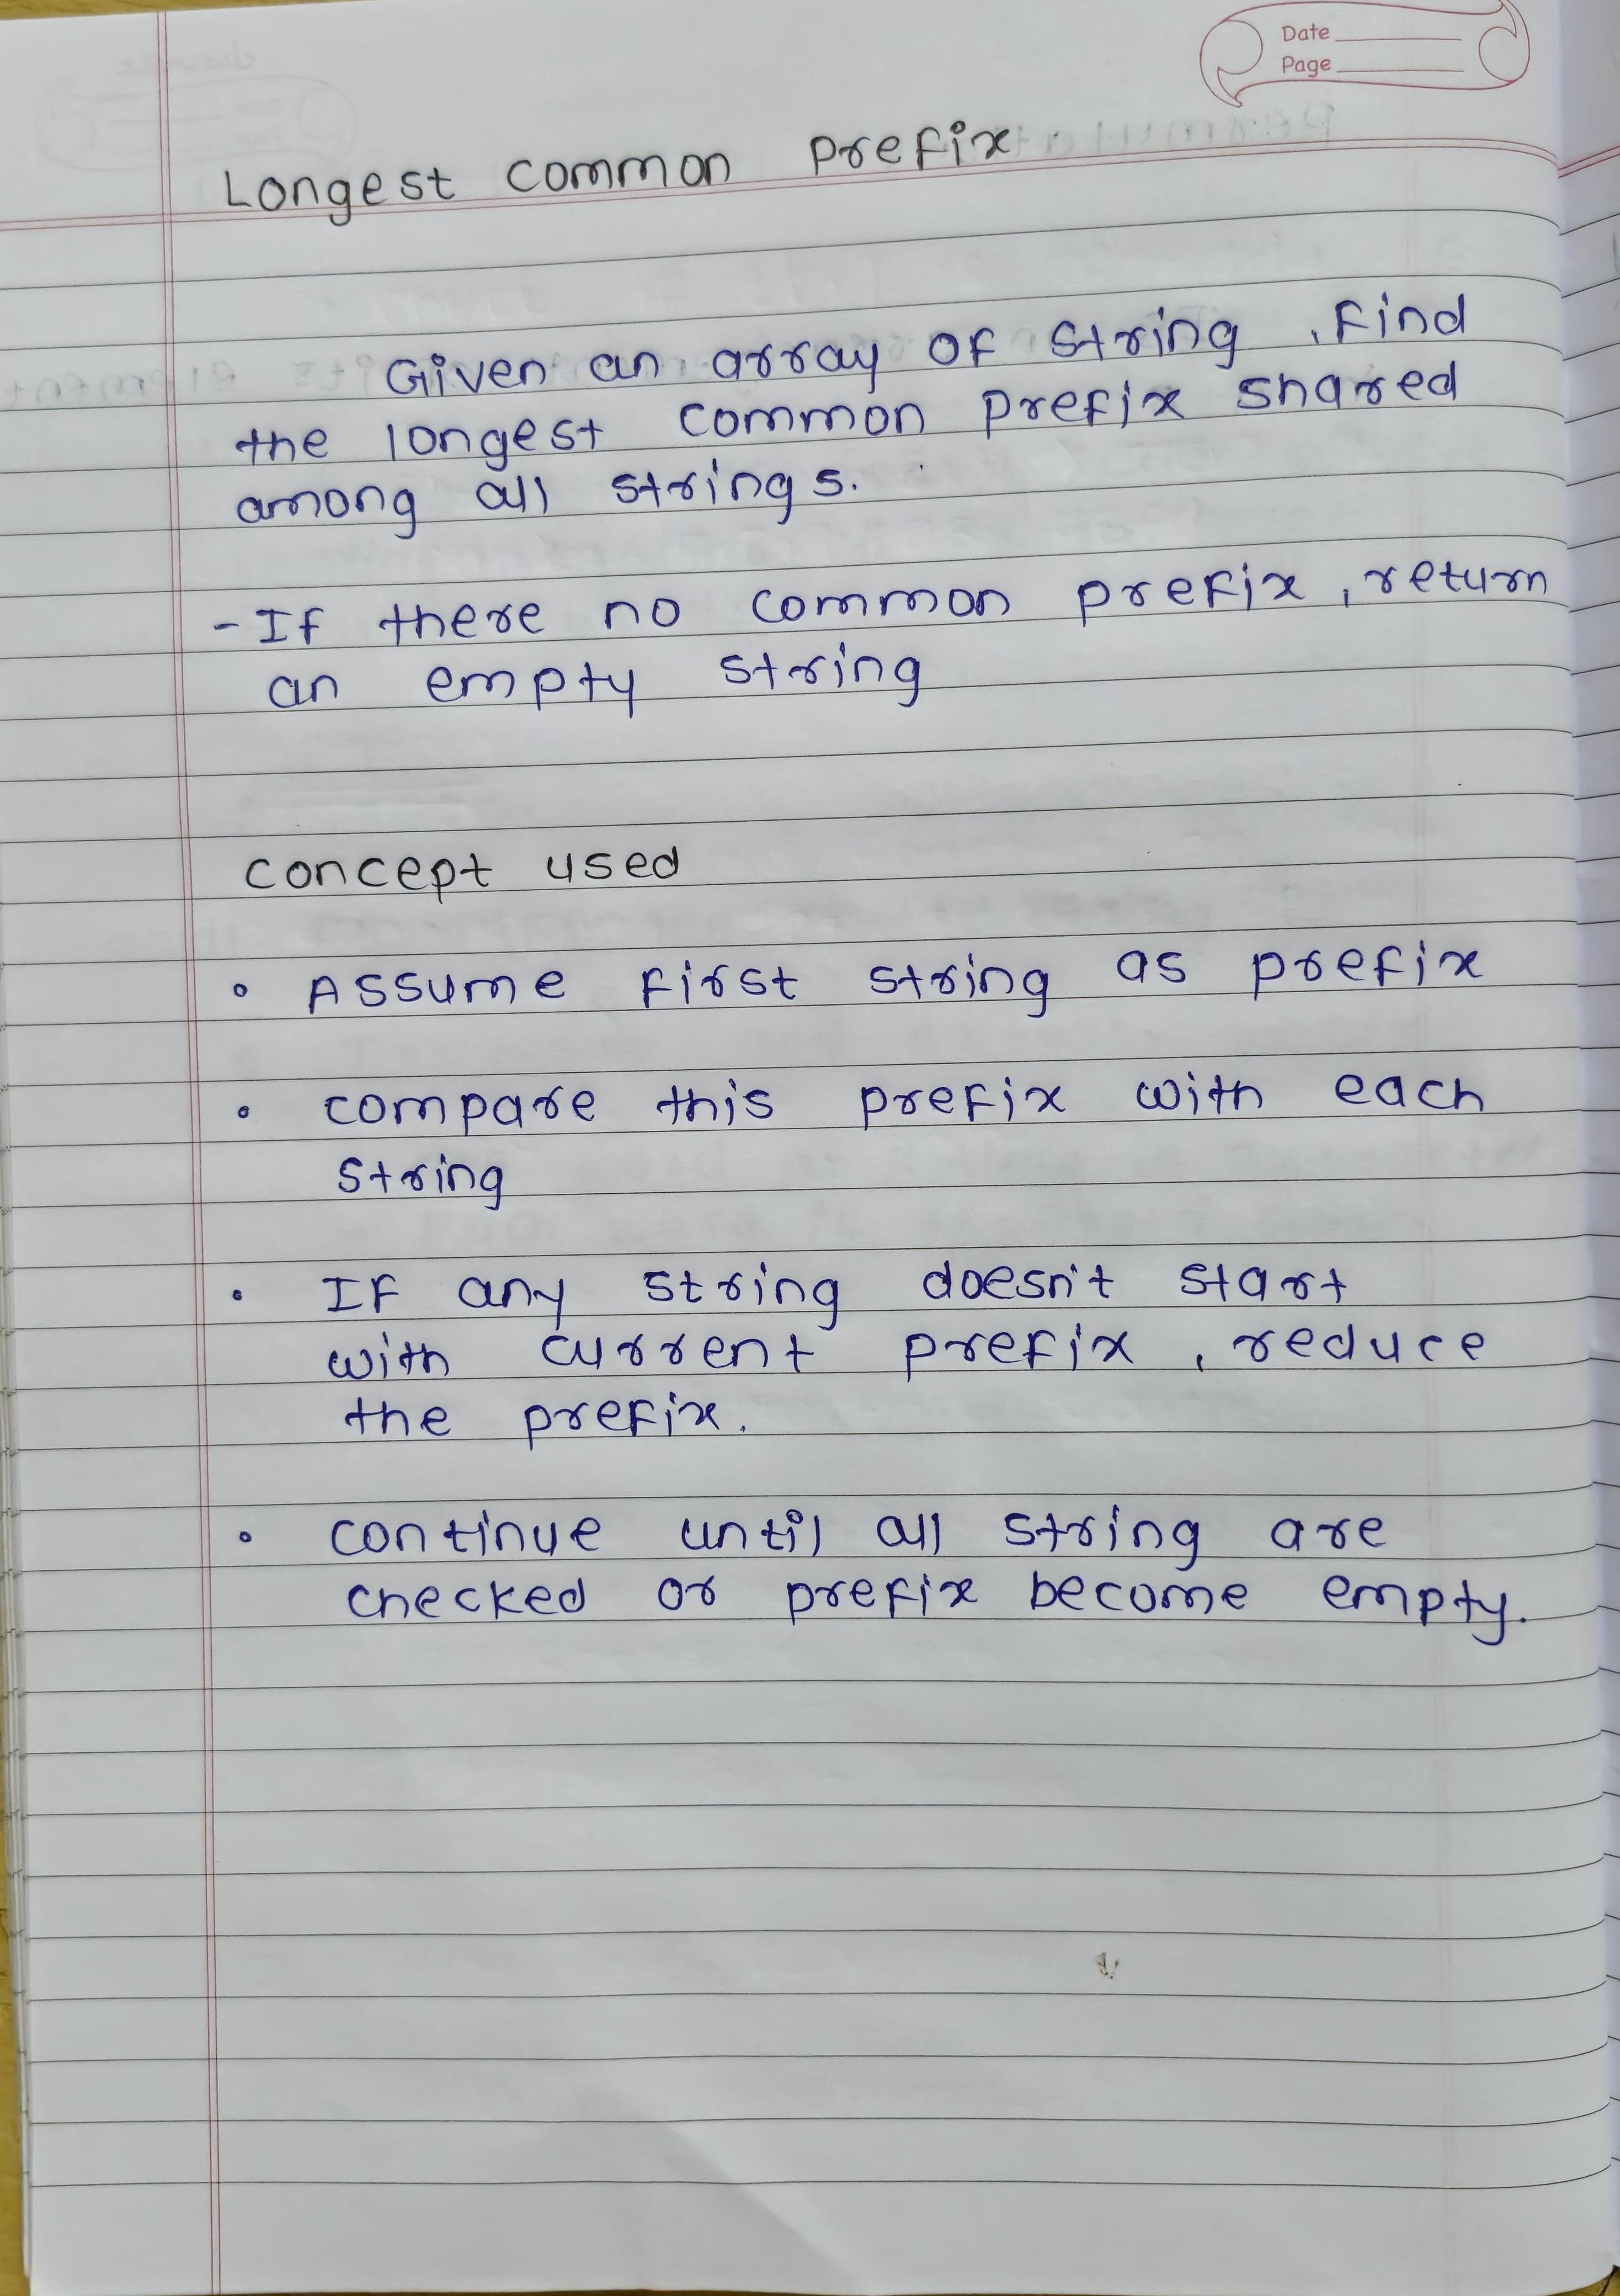 Date
Page
Longest common prefix
Given an array of string, find
the longest common prefix shared
among all strings.
- If there no common prefix, return
an empty string
concept used
• Assume first string as prefix
• compare this prefix with each
string
• If any string doesn't start
with current prefix, reduce
the prefix.
• continue until all string are
checked or prefix become empty.